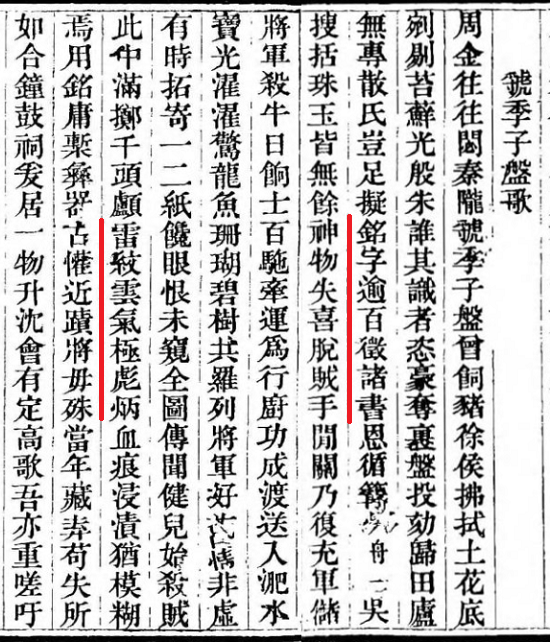 虢季子盤歌
周金往往閟秦隴虢季子盤曾飼豬徐侯拂拭土花底
剜剔苔蘚光般朱誰其識者恣豪奪裹盤投劾歸田廬
無專散氏豈足擬銘字逾百徵諸書恩循舟一吳
搜括珠玉皆無餘神物失喜脫賊手閒關乃復充軍儲
將軍殺牛日餉士百馳牽運爲行廚功成渡送入淝水
寶光濯濯驚龍魚珊瑚碧樹共羅列將軍好情非虛
有時拓寄一二紙饞眼恨未窺全圖傳聞健兒始殺賊
此中滿擲千頭顱雷紋雲氣極彪炳血痕浸漬猶模糊
焉用銘庸槧彝器古懽近蹟將毋殊當年藏弆苟失所
如合鐘鼓祠爰居一物升沈會有定高歌吾亦重嗟吁